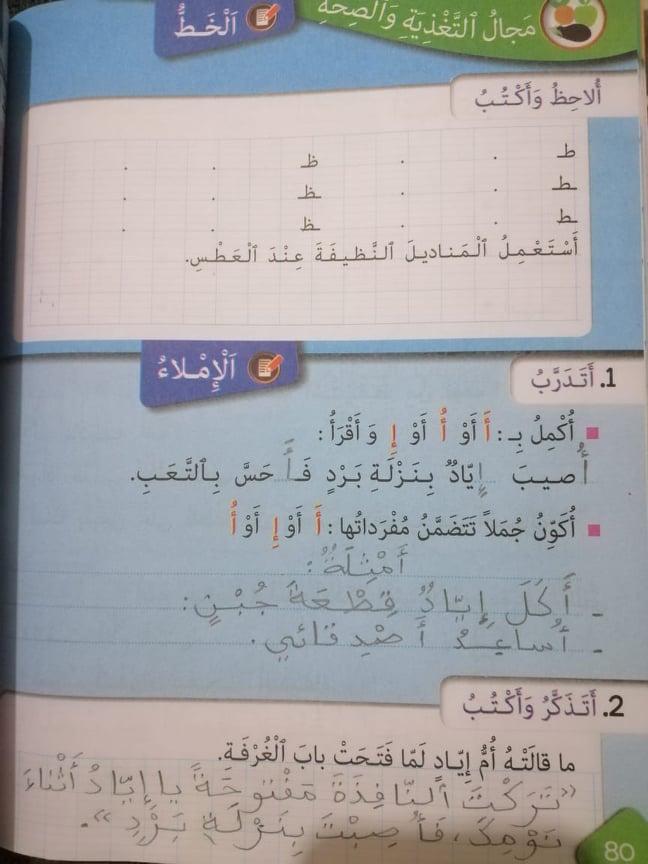 مَجالُ ٱلتَّغْذِيَةِ وَٱلصِّحَّةِ
اَلْخَـطُّ
أُلاحِظُ وَأَكْتُبُ
ط . . ظ . .
ـط . . ـظ . .
ـطـ . . ـظـ . .
أَسْتَعْمِلُ ٱلْمَناديلَ ٱلنَّظيفَةَ عِنْدَ ٱلْعَطْسِ.
اَلْإِمْلاءُ
1. أَتَدَرَّبُ
أُكْمِلُ بِـ: أَ أَوْ أُ أَوْ إِ وَ أَقْرَأُ:
أُصيبَ إِيّادٌ بِنَزْلَةِ بَرْدٍ فَأَحَسَّ بِٱلتَّعَبِ.
أُكَوِّنُ جُمَلاً تَتَضَمَّنُ مُفْرَداتُها: أَ أَوْ إِ أَوْ أُ
أَمْثِلَةٌ:
_ أَكَلَ إِيّادٌ قِطْعَةَ جُبْنٍ:
_ أُساعِدُ أَصْدِقائي.
2. أَتَذَكَّرُ وَأَكْتُبُ
ما قالَتْهُ أُمُّ إِيّادٍ لَمّا فَتَحَتْ بابَ ٱلْغُرْفَةِ.
«تَرَكْتَ ٱلنّافِذَةَ مَفْتوحَةً يا إِيّادُ أَثْناءَ
نَوْمِكَ، فَأُصِبْتَ بِنَزْلَةِ بَرْدٍ».
80